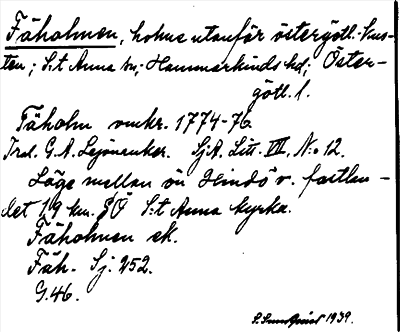 Fäholmen, holme utanför östergötl. kus-
ten; S:t Anna sn; Hammarkinds hd; Öster-
götl. l.
Fäholm omkr. 1774-76
G. A. Lejonanker. SjA. Litt. VIII, N:o 12.
Läge mellan ön Hindö o. fastlan-
det 19 km. SÖ S:t Anna kyrka.
Fäholmen ek.
Fäh. Sj. 252.
G.46.
S. Sundquist 1939.